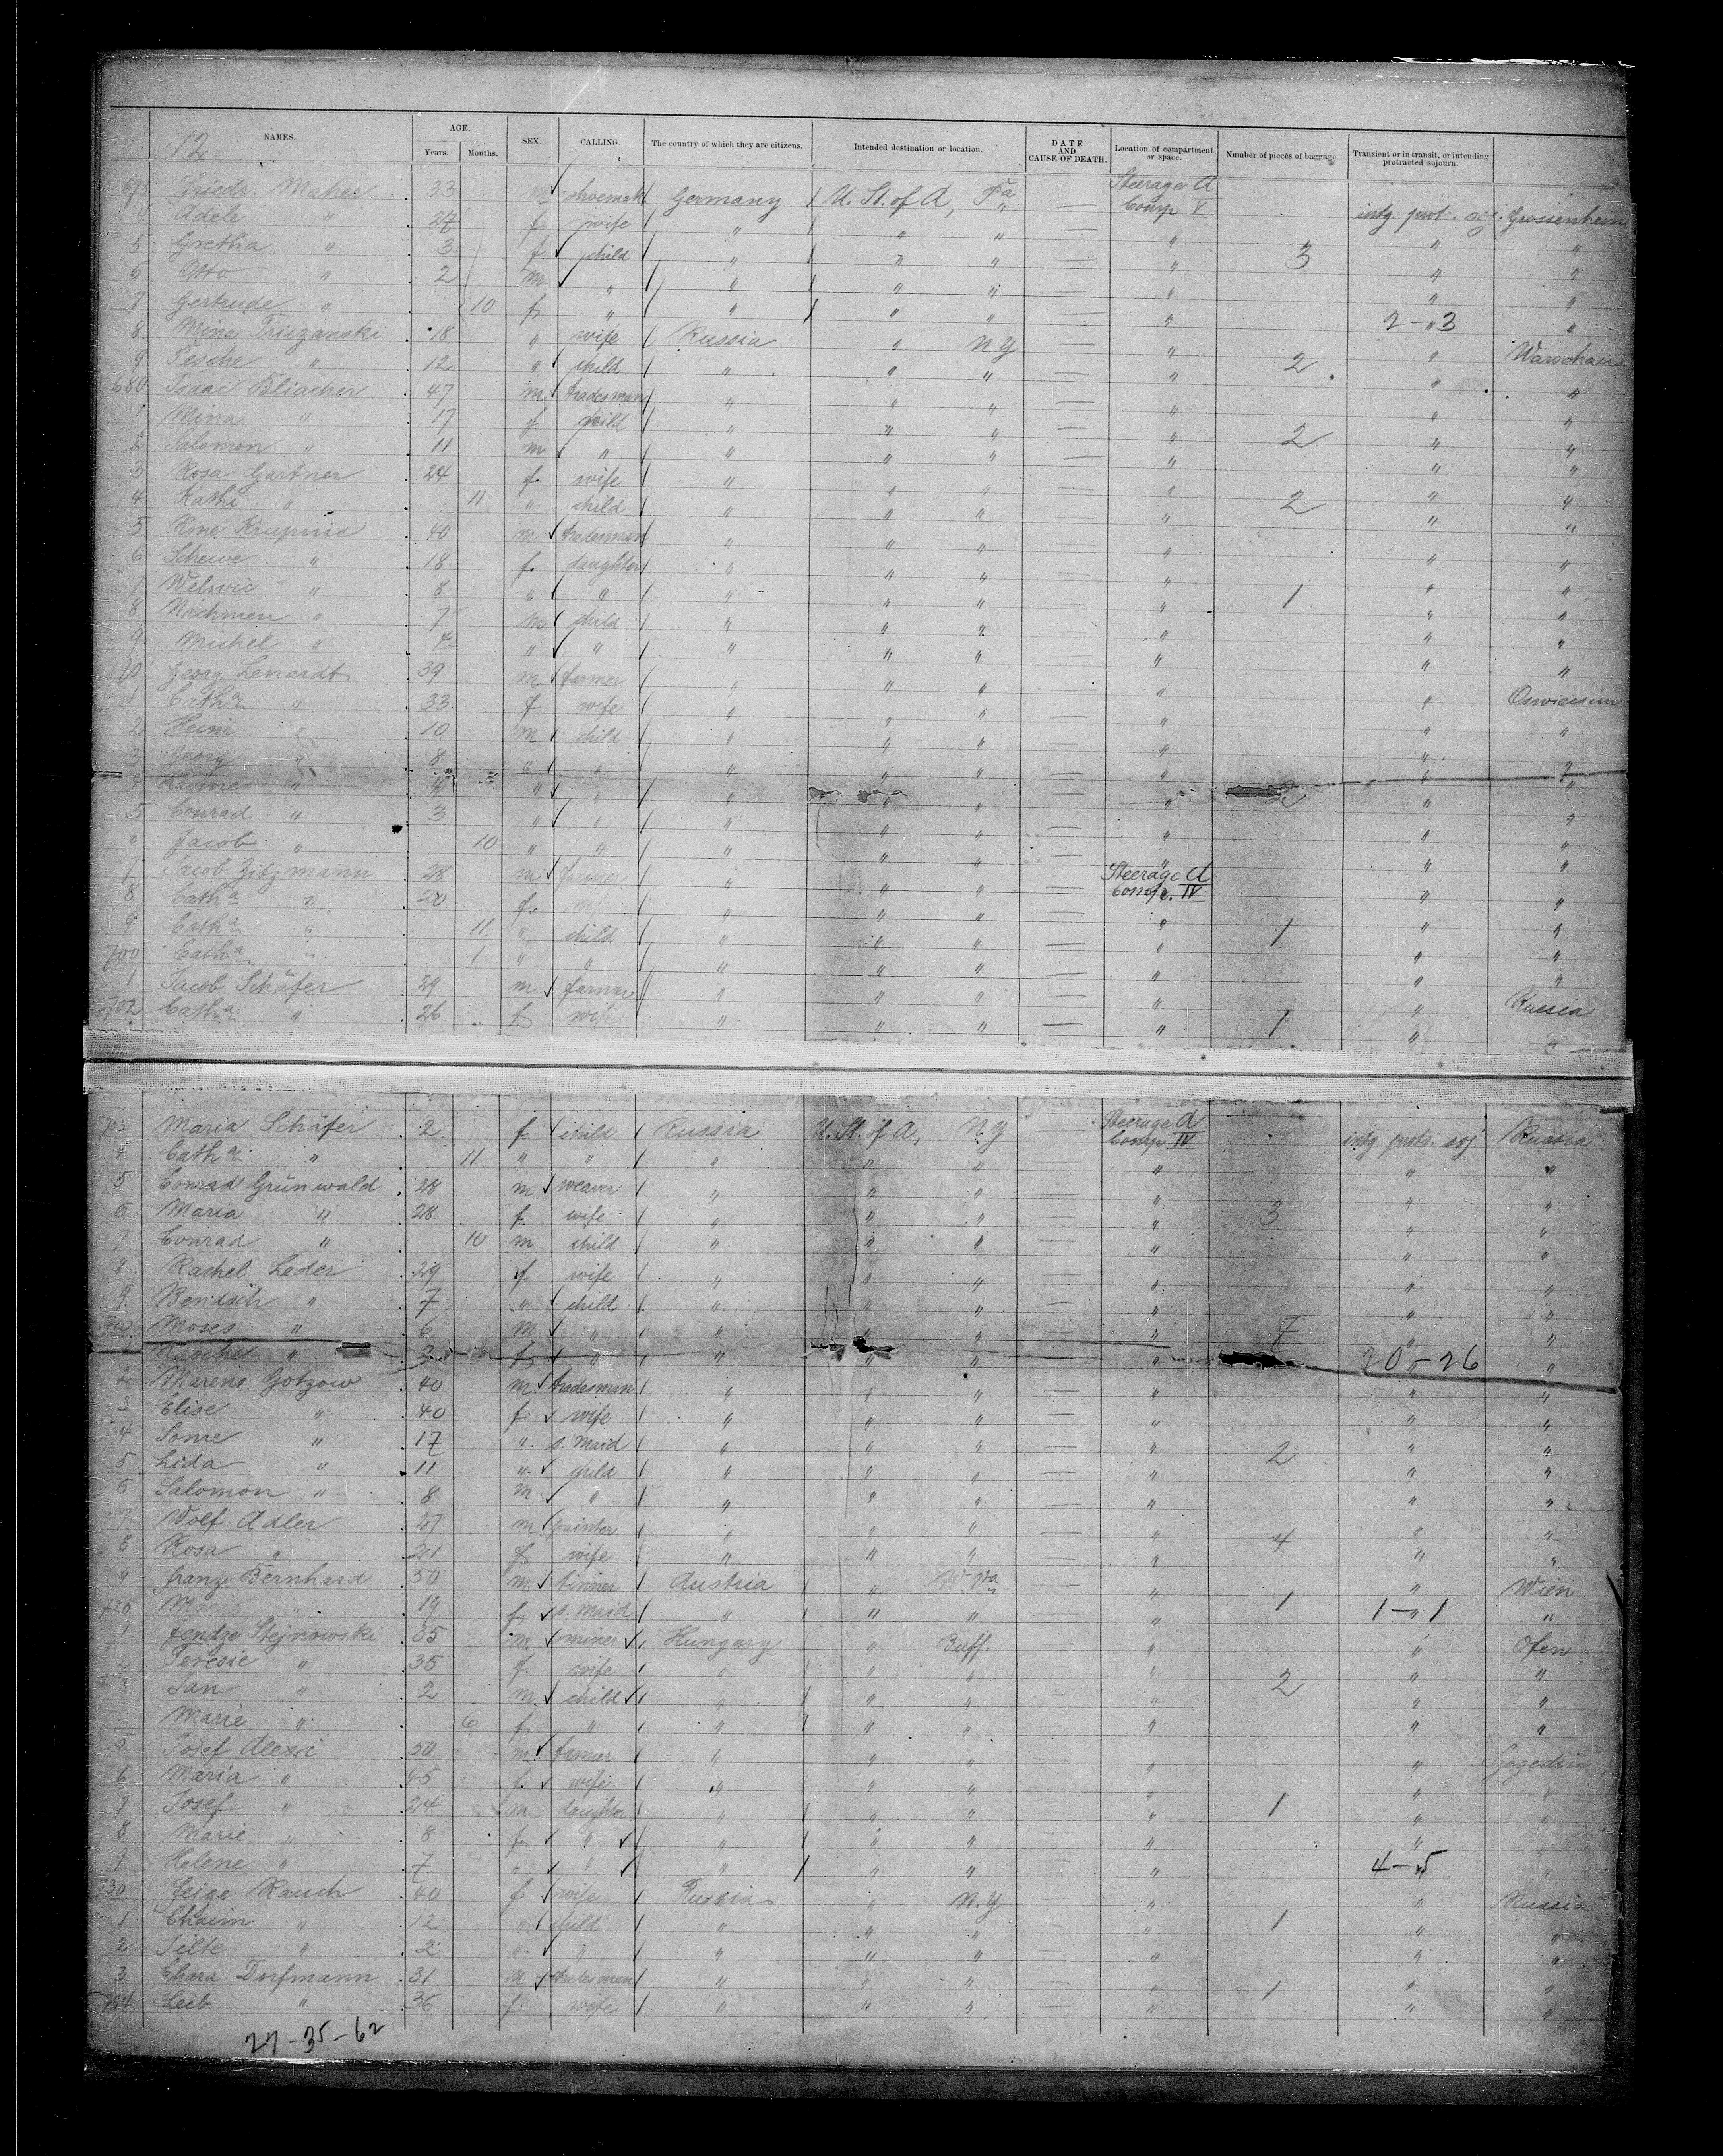 NAMES. AGE. Years. Months. SEX. CALLING. The country of which they are citizens. Intended destination or location. DATE AND CAUSE OF DEATH. Location of compartment or space. Number of pieces of baggage. Transient or in transit, or intending protracted sojourn.
12
673 Friedr. Maher 33 m shoemak Germany U. St. of A, Pa Steerage A Comp V intg. prot. soj. Grossenhein
4 Adele " 27 f wife " " " — " " "
5 Gretha " 3 f child " " " — " 3 " "
6 Otto " 2 m " " " " — " " "
7 Gertrude " 10 f " " " " — " 2-3 "
8 Mina 18 " wife Russia " N Y — " " Warschau
9 Pesche " 12 " child " " " — " 2 " "
680 Isaac Bliacher 47 m tradesman " " " — " " "
1 Mina " 17 f child " " " — " " "
2 Salomon " 11 m " " " " — " 2 " "
3 Rosa Gartner 24 f wife " " " — " " "
4 Kathi " 11 " child " " " — " 2 " "
5 Rone Krupnic 40 m tradesman " " " — " " "
6 Schewe " 18 f. daughter " " " — " " "
7 Welwic " 8 " " " " " — " 1 " "
8 Nachmen " 7 m child " " " — " " "
9 Michel " 4 " " " " " — " " "
90 Georg Lenardt 39 m farmer " " " — " " Oswiecsim
1 Catha " 33 f wife " " " — " " "
2 Heinr " 10 m child " " " — " " "
3 Georg " 8 " " " " " — " " "
4 Hanne " " " " " " — " 2 " "
5 Conrad " 3 " " " " " — " " "
Jacob " 10 " " " " " — " " "
7 Jacob Zitzmann 28 m farmer " " " — Steerage A Comp. IV " "
8 Catha " 20 f. wife " " " — " " "
9 Catha " 11 " child " " " — " 1 " "
700 Catha " 1 " " " " " — " " "
1 Jacob Schäfer 29 m farmer " " " — " " Russia
702 Catha " 26 f wife " " " — " 1 " "
703 Maria Schäfer 2 f child Russia U. St. of A, N. Y Steerage A Comp IV intg protr. soj. Russia
4 Catha " 11 " " " " " — " " "
5 Conrad Grünwald 28 m weaver " " " — " " "
6 Maria " 28 f. wife " " " — " 3 " "
7 Conrad " 10 m child " " " — " " "
8 Rachel Leder 29 f wife " " " — " " "
9 Bendsch " 7 " child " " " — " " "
710 Moses " 6 m " " " " — " 7 " "
1 Raschel " f " " " " — " 20-26 "
2 Marens Gotzow 40 m tradesman " " " — " " "
3 Elise " 40 f. wife " " " — " " "
4 Some " 17 " s. maid " " " — " 2 " "
5 Lida " 11 " child " " " — " " "
6 Salomon " 8 m " " " " — " " "
7 Wolf Adler 27 m painter " " " — " 4 " "
8 Rosa " 21 f wife " " " — " " "
9 Franz Bernhard 50 m tinner Austria " W. Va — " 1 " Wien
720 Marie " 19 f s. maid " " " — " 1-1 "
1 Jendze Stejnowski 35 m miner Hungary " Buff. — " " Ofen
2 Teresie " 35 f. wife " " " — " 2 " "
3 Jan " 2 m. child " " " — " " "
Marie " 6 f " " " " — " " "
5 Josef Alexi 50 m. farmer " " " — " " Szegedin
6 Maria " 45 f. wife " " " — " " "
7 Josef " 24 m daughter " " " — " 1 " "
8 Marie " 8 f " " " " — " " "
9 Helene " 7 " " " " " — " 4-5 "
730 Feige Rauch 40 f wife Russia " N. Y — " " Russia
1 Chaim " 12 " child " " " — " 1 " "
2 Silte " 2 " " " " " — " " "
3 Chara Dorfmann 31 m tradesman " " " — " 1 " "
734 Leib " 36 f. wife " " " — " " "
27-35-62